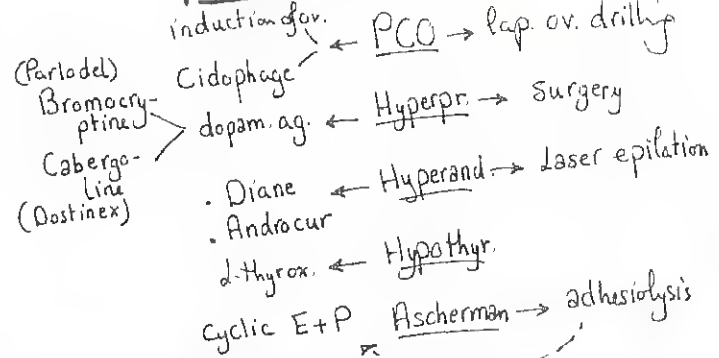 induction of ov.
PCO → lap. ov. drilling
Cidophage ←
(Parlodel)
Bromocry-
ptine
dopam. ag. ← Hyperpr. → Surgery
Caberga-
line
(Dostinex)
. Diane ← Hyperand. → Laser epilation
. Androcur
L-thyrox. ← Hypothyr.
Cyclic E+P Ascherman → adhesiolysis